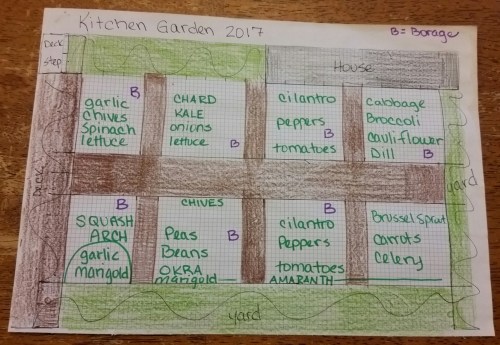 Kitchen Garden 2017
B = Borage
Deck
step
House
B
garlic
chives
Spinach
lettuce
CHARD
KALE
onions
lettuce
B
cilantro
peppers
B
tomatoes
cabbage
Broccoli
cauliflower
Dill
B
Deck
yard
B
SQUASH
ARCH
garlic
marigold
CHIVES
Peas
Beans
B
OKRA
marigold
B
cilantro
Peppers
tomatoes
AMARANTH
Brussel Sprout
carrots
celery
yard